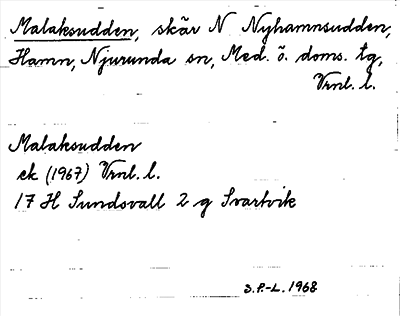 Malaksudden, skär N Nyhamnsudden,
Hamn, Njurunda sn, Med. ö. doms. tg,
Vrnl. l.
Malaksudden
ek (1967) Vrnl. l.
17 H Sundsvall 2 g Svartvik
S.P.-L. 1968